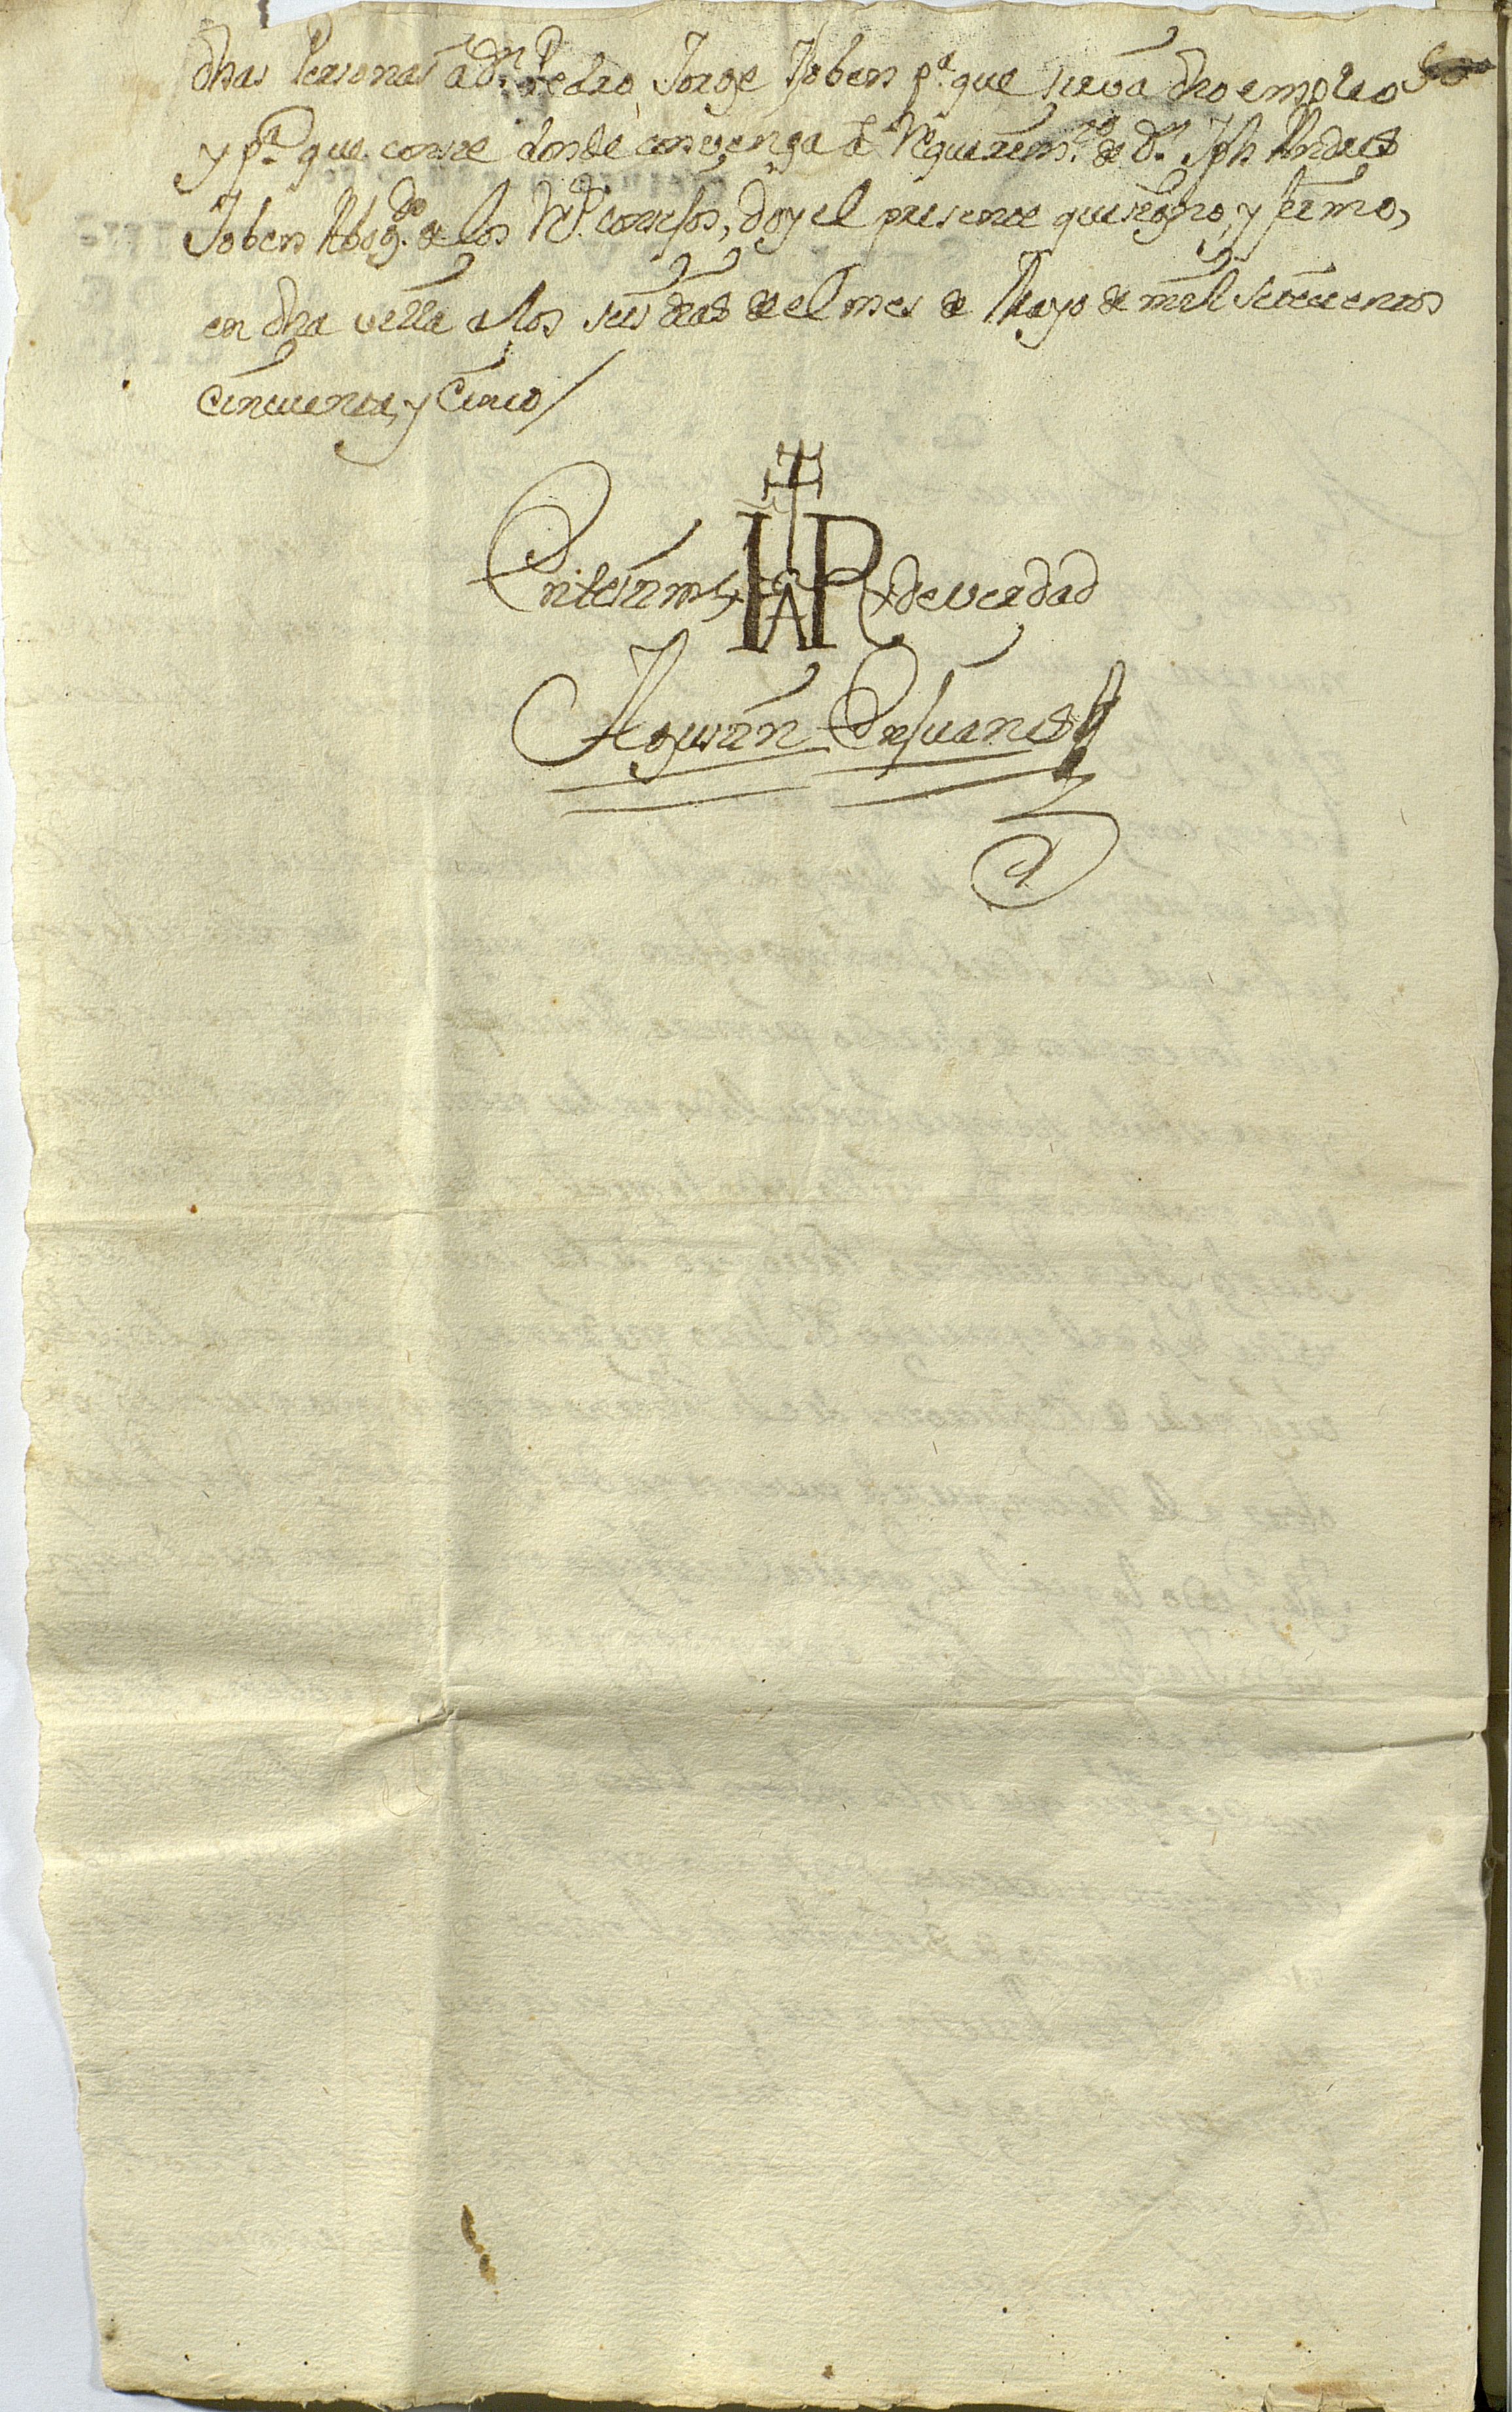 dhas Personas a Dn. Pedro Jorge Joben pa. que sirva dho empleo
y pa. que conste donde convenga a Requerimto. de Dn. Jph Andres
Joben Abogdo. de los Rs. consejos, doy el presente que signo, y firmo,
en dha villa a los seis dias de el mes de Mayo de mil setecientos
cinquenta, y Cinco/
En testimo de verdad
Agustin